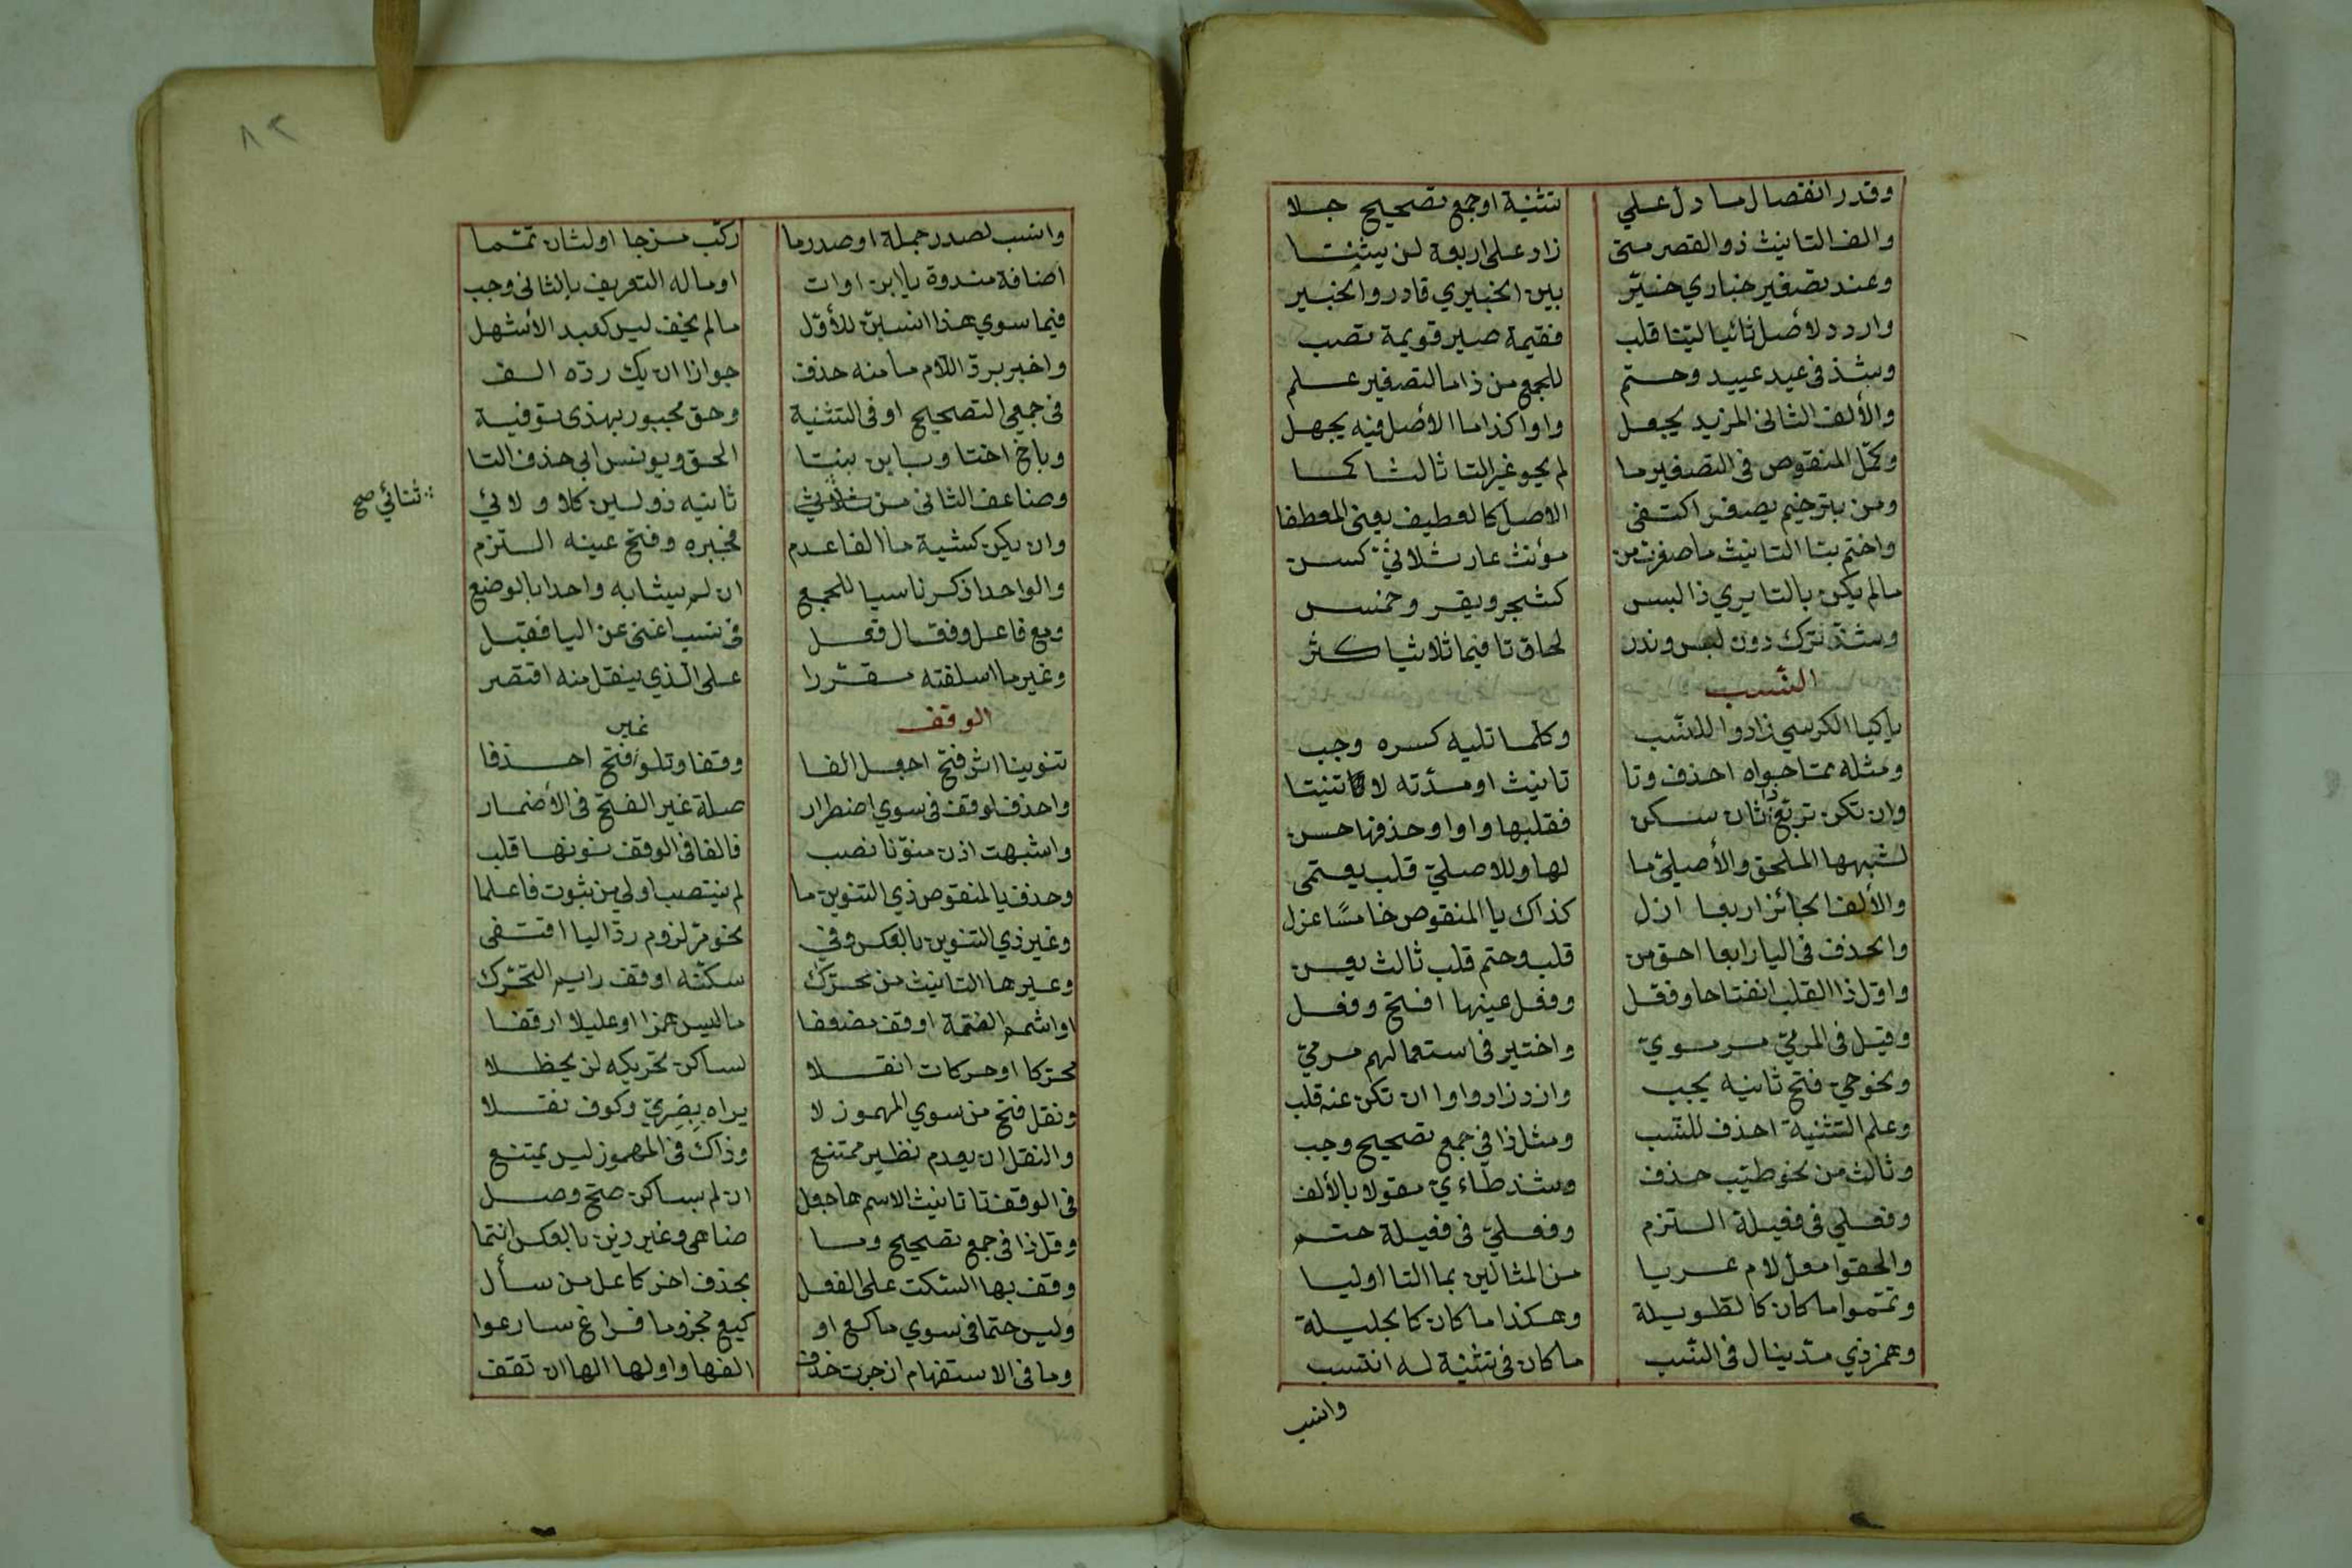 وقدر انفصال ما دل علي تثنية او جمع تصحيح جلا
والف التانيث ذو القصر متى زاد على اربعة لن يثبتا
وعند تصغير حباري خير بين الحبيري فادر والحبير
واردد لاصل ثانيا لينا قلب فقيمة صير قويمة تصب
وشذ في عيد عييد وحتم للجمع من ذا ما لتصغير علم
والألف الثاني المزيد يجعل واوا كذا ما الاصل فيه يجهل
وكمّل المنقوص في التصغير ما لم يحو غير التا ثالثا كما
ومن بترخيم يصغر اكتفى الاصل كالعطيف يعني المعطفا
واختم بتا التانيث ما صغرت من مؤنث عار ثلاثيّ كسن
مالم يكن بالتا يري ذا لبس كشجر وبقر وخمس
وشذّ ترك دون لبس وندر لحاق تا فيما ثلاثيا كثر
النسب
ياء كيا الكرسي زادوا للنسب وكلما تليه كسره وجب
ومثله مما حواه احذف وتا تانيث او مدّته لا تثبتا
وان تكن تربع ذا ثان سكن فقلبها واوا وحذفها حسن
لشبهها الملحق والأصليّ ما لها وللاصليّ قلب يعتمى
والألف الجائز اربعا ازل كذاك يا المنقوص خامسًا عزل
والحذف في اليا رابعا احق من قلب وحتم قلب ثالث يعن
واوّل ذا القلب انفتاحا وفعل وفعل عينها افتح وفعل
وقيل في المرميّ مرمويّ واختير في استعمالهم مرميّ
ونحو حيّ فتح ثانيه يجب واردد واوا ان تكن عنه قلب
وعلم التثنية احذف للنّسب ومثل ذا في جمع تصحيح وجب
وثالث من نحو طيّب حذف وشذ طاءيّ مقولا بالألف
وفعلي في فعيلة التزم وفعليّ في فعيلة حتم
والحقوا معلّ لام عريا من المثالين بما التا اوليا
وتمّموا ما كان كالطّويلة وهكذا ما كان كالجليلة
وهمز ذي مدّ ينال في النّسب ما كان في تثنية له انتسب
وانسب
٨٢
وانسب لصدر جملة او صدر ما ركّب مزجا او لثان تمّما
اضافة مبدوة بابن او ات او ماله التعريف بالثاني وجب
فيما سوي هذا انسبن للأوّل مالم يخف لبس كعبد الأشهل
واخبر بردّ اللّام ما منه حذف جوازا ان يك ردّه الف
في جمعي التصحيح او في التثنية وحق مجبور بهذي توفية
وباخ اختا وبابن بنتا الحق ويونس ابى حذف التا
وضاعف الثاني من ثلاثي ثانيه ذو لين كلا ولائي
∴ ثنائي صح
وان يكن كشية ما الفا عدم فجبره وفتح عينه التزم
والواحد اذكر ناسبا للجمع ان لم يشابه واحدا بالوضع
ومع فاعل وفعّال فعل في نسب اغنى عن اليا فقبل
وغير ما اسلفته مقرّرا على الّذي ينقل منه اقتصر
الوقف
غير
تنوينا اثر فتح اجعل الفا وقفا وتلو فتح احذفا
واحذف لوقف في سوي اضطرار صلة غير الفتح في الأضمار
واشبهت اذن منوّنا نصب فالفا في الوقف نونها قلب
وحذف يا المنقوص ذي التنوين ما لم ينتصب اولي من ثبوت فاعلما
وغير ذي التنوين بالعكس وفي نحو مرّ لزوم ردّ اليا اقتفى
وغير ها التانيث من محرّك سكّنه او قف رايم التحرّك
او اشمم الضمّة او قف مضعفا ما ليس همزا او عليلا ان قفا
محرّكا او حركات انقلا لساكن تحريكه لن يحظلا
ونقل فتح من سوي المهموز لا يراه بصريّ وكوف نقلا
والنقل ان يعدم نظير ممتنع وذاك في المهموز ليس يمتنع
في الوقف تا تانيث الاسم ها جعل ان لم بساكن صحّ وصل
وقل ذا في جمع تصحيح وما ضاهى وغير ذين بالعكس انتما
وقف بها السّكت على الفعل بحذف اخر كاعل من سأل
وليس حتما في سوي ما كع او كيع مجزوما فراع ما رعوا
وما في الاستفهام ان جرت حذف الفها واولها الها ان تقف